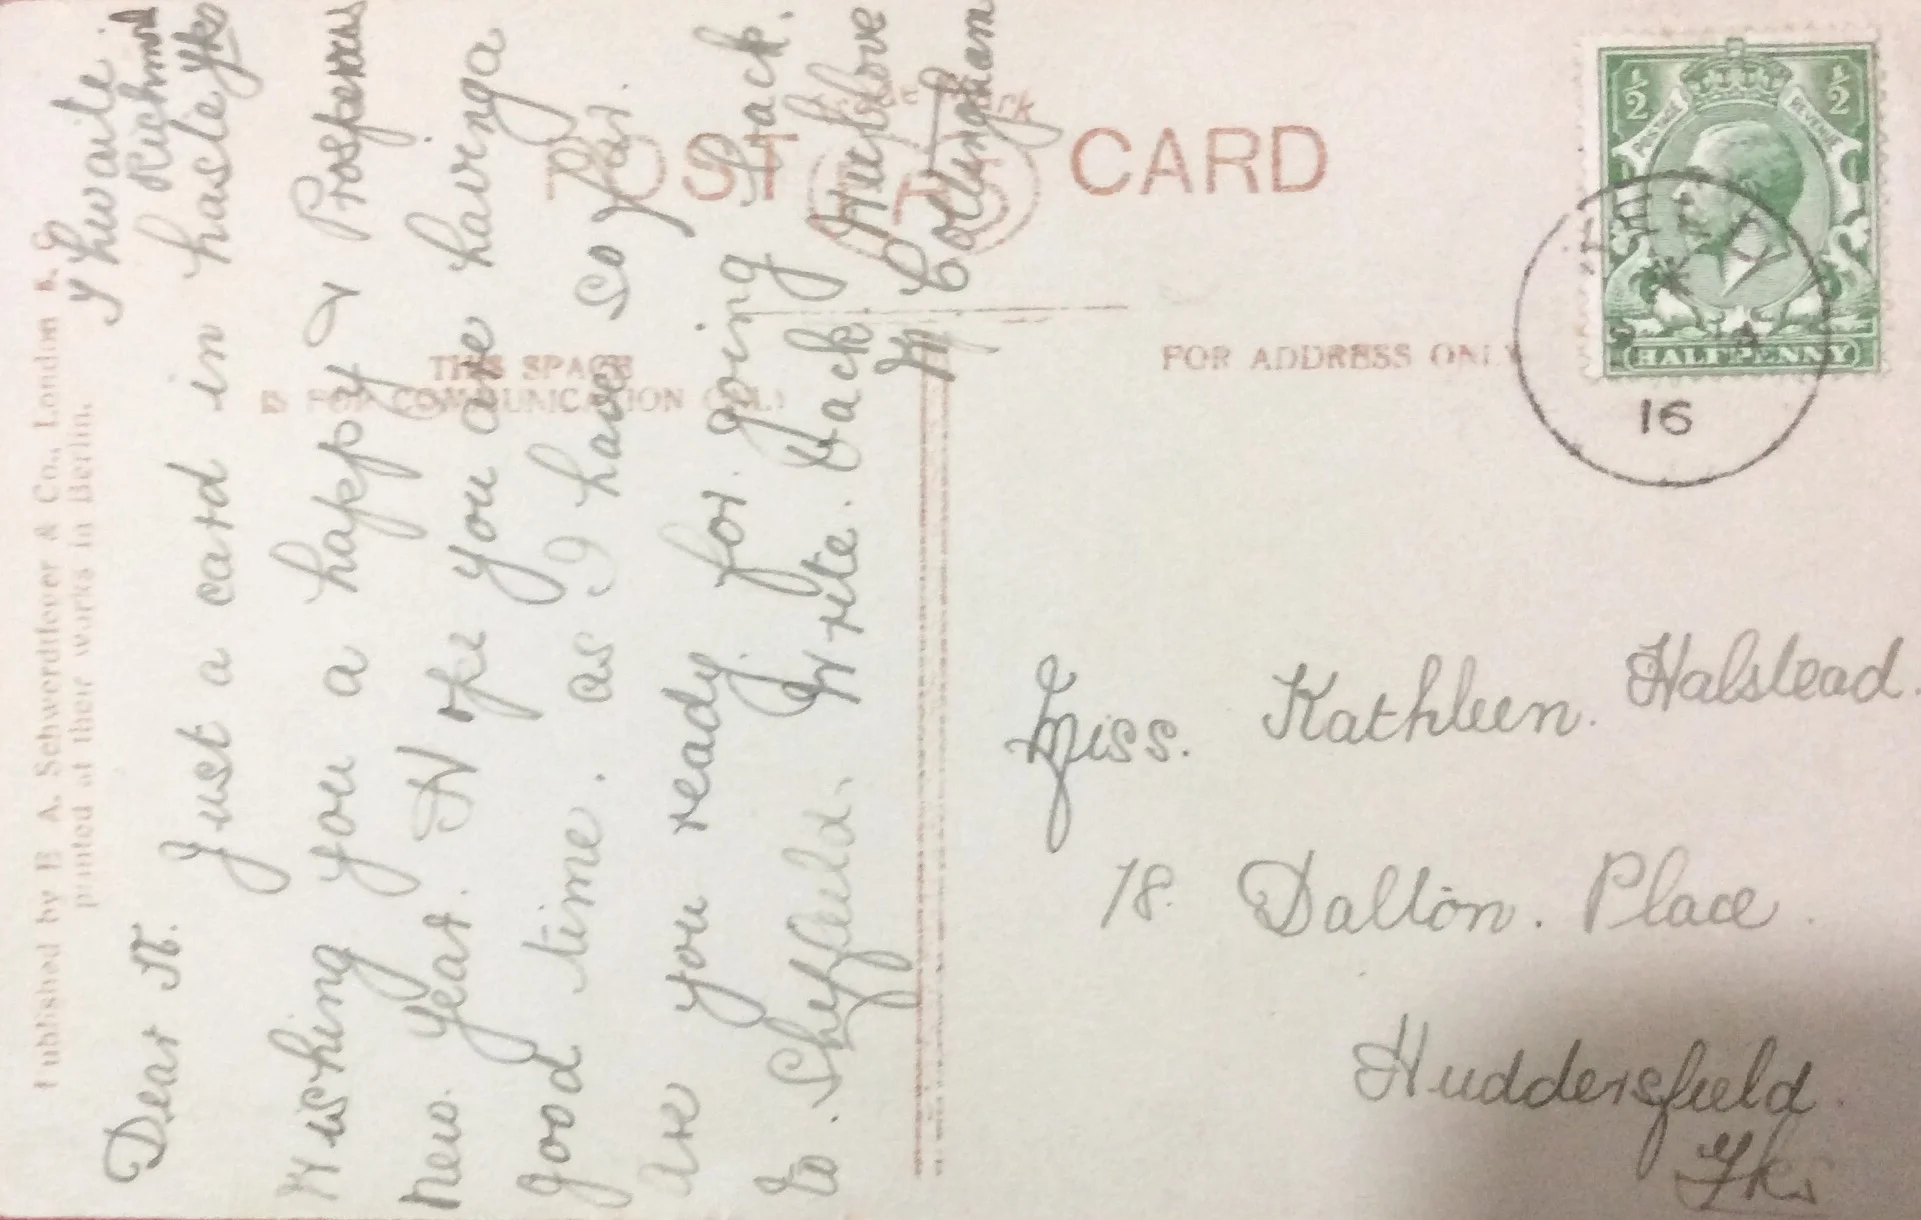 Published by E. A. Schwerdtfeger & Co., London E.C.
printed at their works in Berlin.
POST CARD
Trade Mark
THIS SPACE
IS FOR COMMUNICATION ONLY
FOR ADDRESS ONLY
Thwaite
Richmond
Yks
Dear K.
Just a card in haste
Wishing you a happy & Prosperous
New Year. Hope you are having a
good time. as I have so far.
Are you ready for going back.
to. Sheffield. Write back
love
M Collingham
Miss. Kathleen. Halstead.
18. Dalton. Place.
Huddersfield.
Yks
½ ½
POSTAGE REVENUE
HALFPENNY
16